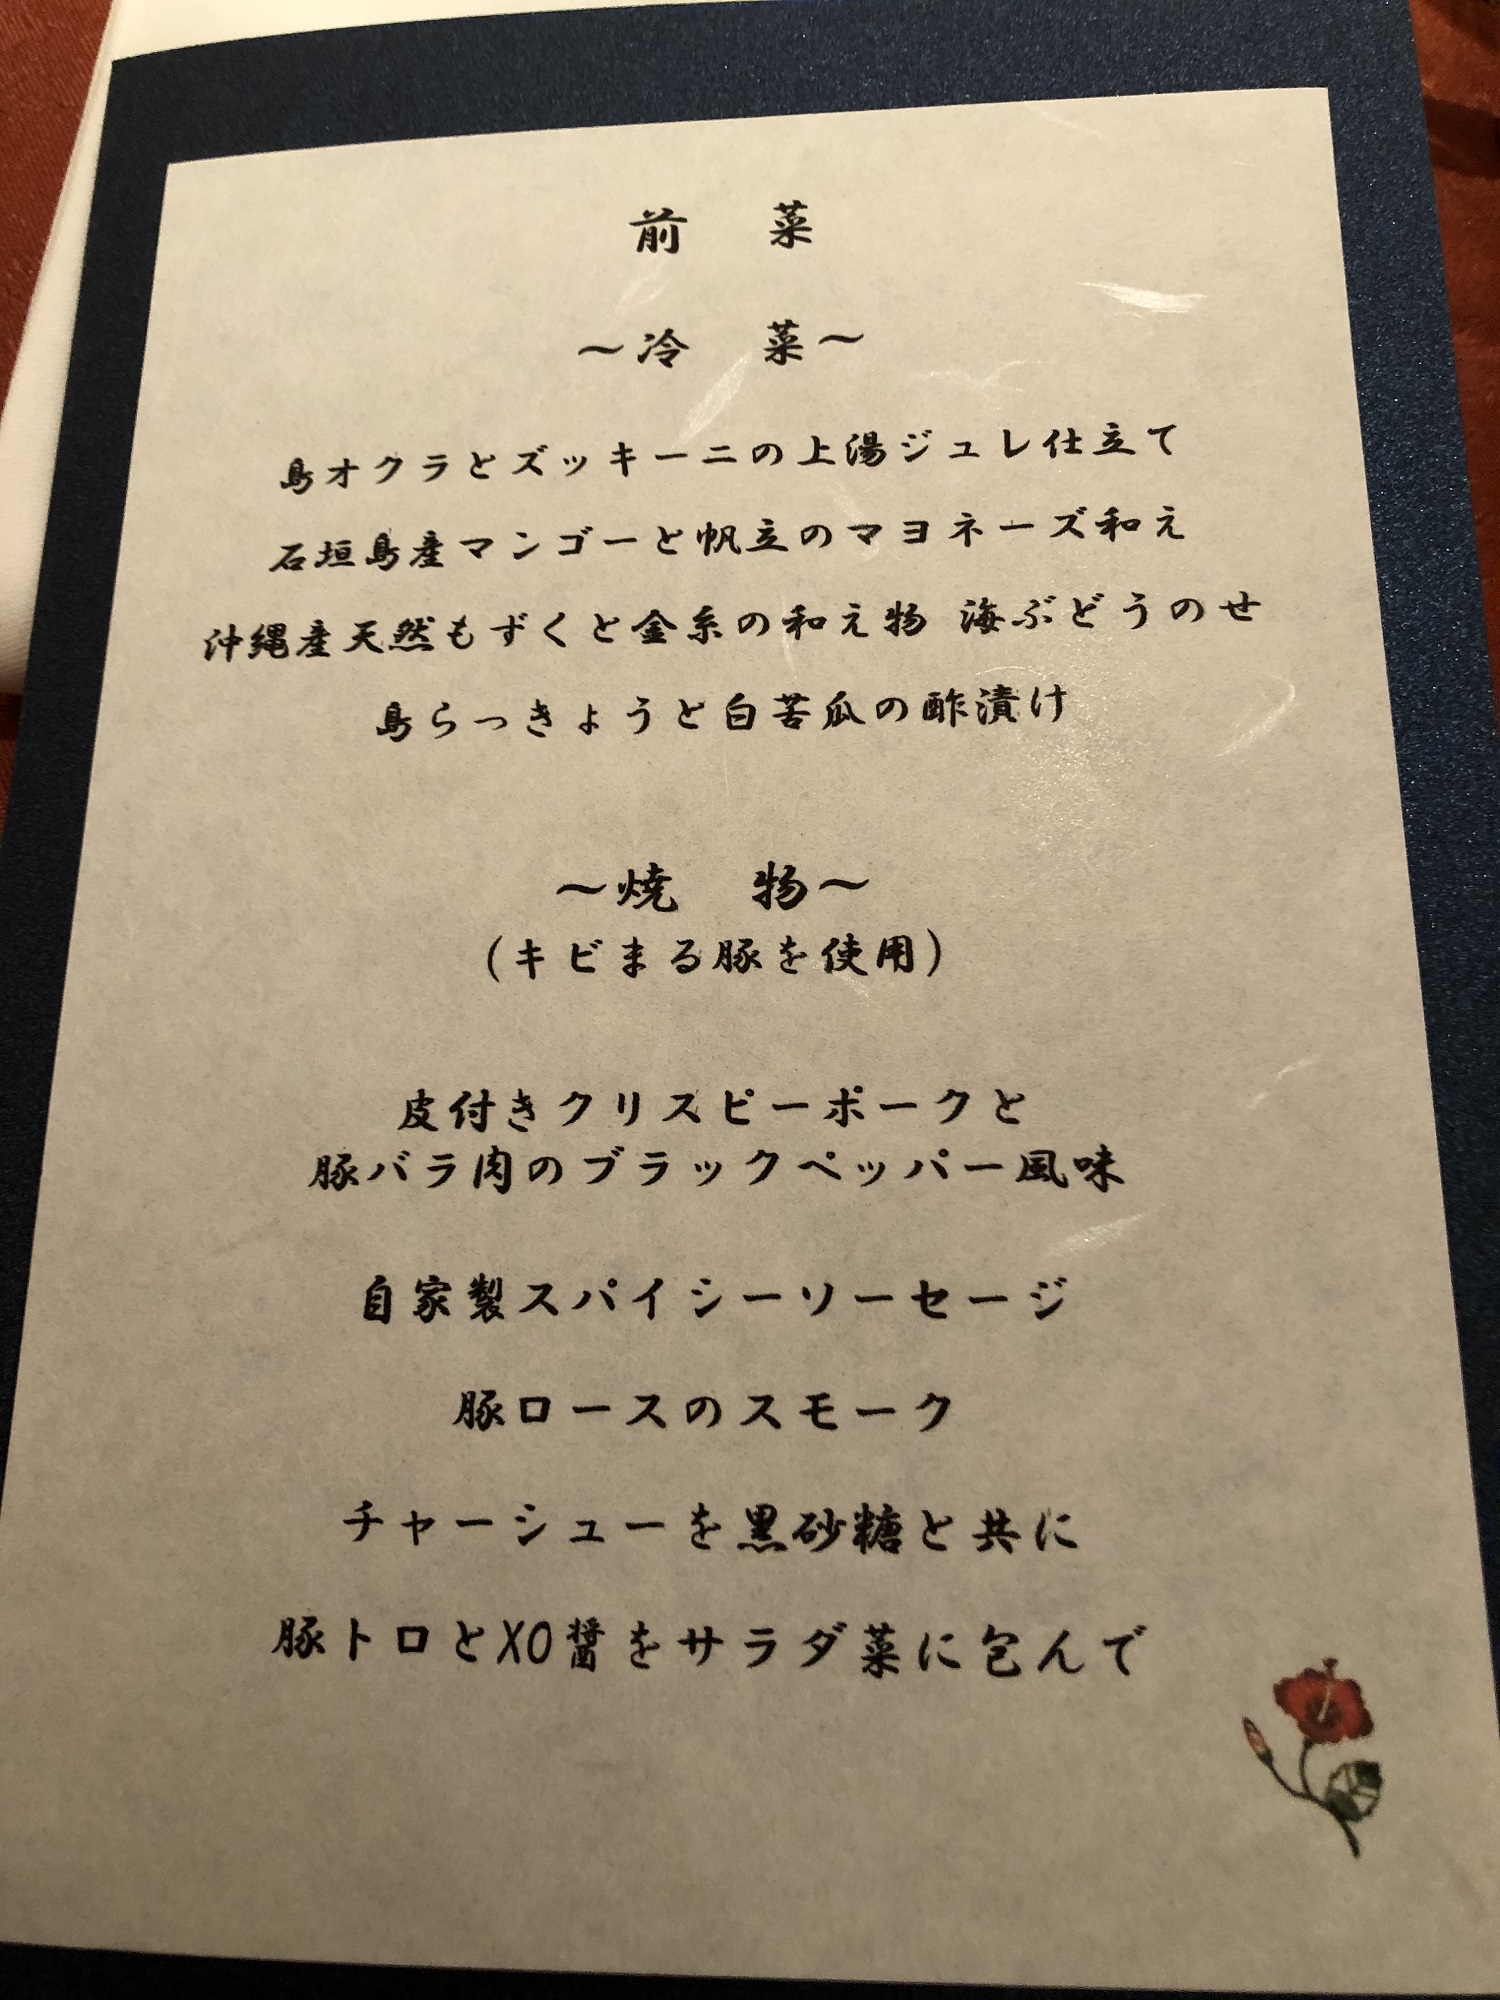 前　菜
～冷　菜～
島オクラとズッキーニの上湯ジュレ仕立て
石垣島産マンゴーと帆立のマヨネーズ和え
沖縄産天然もずくと金糸の和え物 海ぶどうのせ
島らっきょうと白苦瓜の酢漬け
～焼　物～
(キビまる豚を使用)
皮付きクリスピーポークと
豚バラ肉のブラックペッパー風味
自家製スパイシーソーセージ
豚ロースのスモーク
チャーシューを黒砂糖と共に
豚トロとXO醤をサラダ菜に包んで